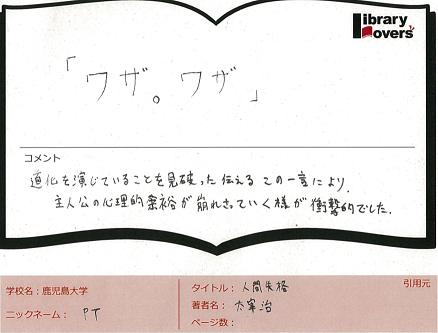 Library Lovers'
「ワザ。ワザ」
コメント
道化を演じていることを見破った伝える この一言により、
主人公の心理的余裕が崩れさっていく様が衝撃的でした.
学校名：鹿児島大学
ニックネーム： PT
タイトル：人間失格
引用元
著者名：太宰治
ページ数：